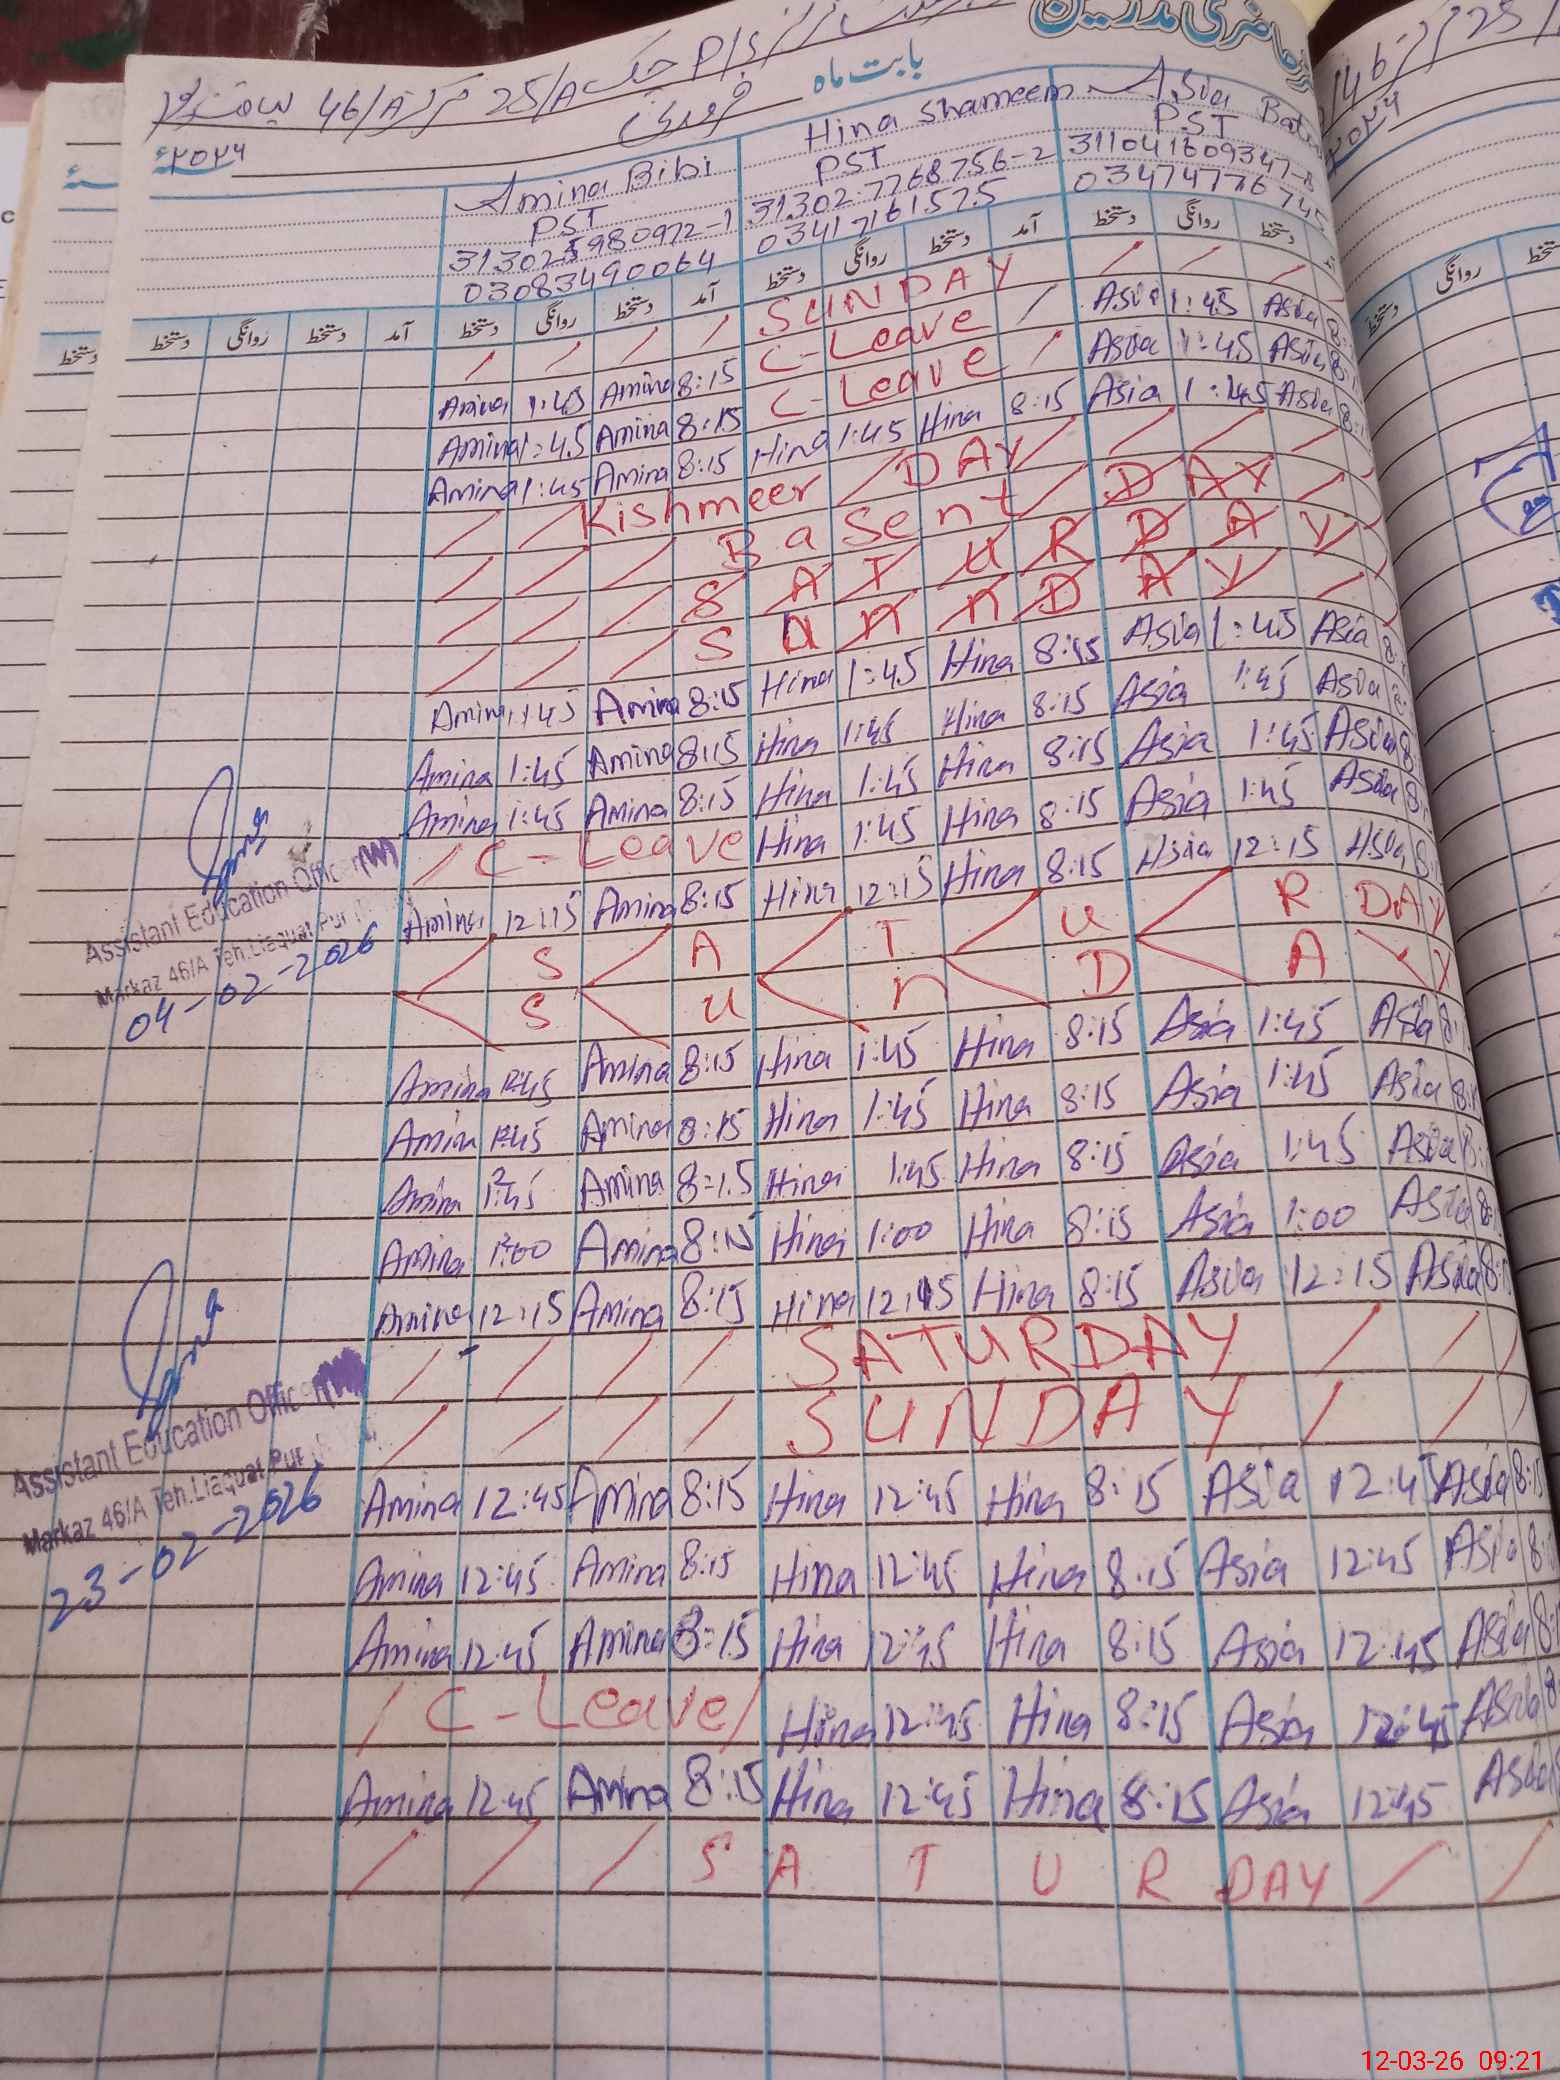 حاضری مدرسین
P/S چک 25/A مرکز 46/A
بابت ماہ فروری
۲۰۲۶ء
Amina Bibi Hina Shameem Asia
PST PST PST
31302 980972-1 31302 7768756-2 311041609347-8
03083490064 03417161575 0347477674
دستخط روانگی دستخط آمد دستخط روانگی دستخط آمد دستخط روانگی دستخط آمد دستخط روانگی دستخط
/ / / / SUNDAY / / /
Amina 1:45 Amina 8:15 C-Leave / Asia 1:45 Asia 8:
Amina 1:45 Amina 8:15 C-Leave / Asia 1:45 Asia 8:
Amina 1:45 Amina 8:15 Hina 1:45 Hina 8:15 Asia 1:45 Asia 8:
/ / Kishmeer / DAY / / / /
/ / / Basent / DAY /
/ / / SATURDAY /
/ / / SUNDAY /
Amina 1:45 Amina 8:15 Hina 1:45 Hina 8:15 Asia 1:45 Asia 8:
Amina 1:45 Amina 8:15 Hina 1:45 Hina 8:15 Asia 1:45 Asia 8:
Amina 1:45 Amina 8:15 Hina 1:45 Hina 8:15 Asia 1:45 Asia 8:
/ C-Leave Hina 1:45 Hina 8:15 Asia 1:45 Asia 8:
Amina 12:15 Amina 8:15 Hina 12:15 Hina 8:15 Asia 12:15 Asia 8:
SATURDAY
SUNDAY
Amina 1:45 Amina 8:15 Hina 1:45 Hina 8:15 Asia 1:45 Asia 8:
Amina 1:45 Amina 8:15 Hina 1:45 Hina 8:15 Asia 1:45 Asia 8:
Amina 1:45 Amina 8:15 Hina 1:45 Hina 8:15 Asia 1:45 Asia 8:
Amina 1:00 Amina 8:15 Hina 1:00 Hina 8:15 Asia 1:00 Asia 8:
Amina 12:15 Amina 8:15 Hina 12:15 Hina 8:15 Asia 12:15 Asia 8:
/ / / / SATURDAY / / /
/ / / / SUNDAY / / /
Amina 12:45 Amina 8:15 Hina 12:45 Hina 8:15 Asia 12:45 Asia 8:15
Amina 12:45 Amina 8:15 Hina 12:45 Hina 8:15 Asia 12:45 Asia 8:
Amina 12:45 Amina 8:15 Hina 12:45 Hina 8:15 Asia 12:45 Asia 8:
/ C-Leave / Hina 12:45 Hina 8:15 Asia 12:45 Asia 8:
Amina 12:45 Amina 8:15 Hina 12:45 Hina 8:15 Asia 12:45 Asia
/ / / SATURDAY / /
Assistant Education Officer
Markaz 46/A Teh.Liaquat Pur
04-02-2026
Assistant Education Officer
Markaz 46/A Teh.Liaquat Pur
23-02-2026
روانگی دستخط
دستخط
12-03-26 09:21